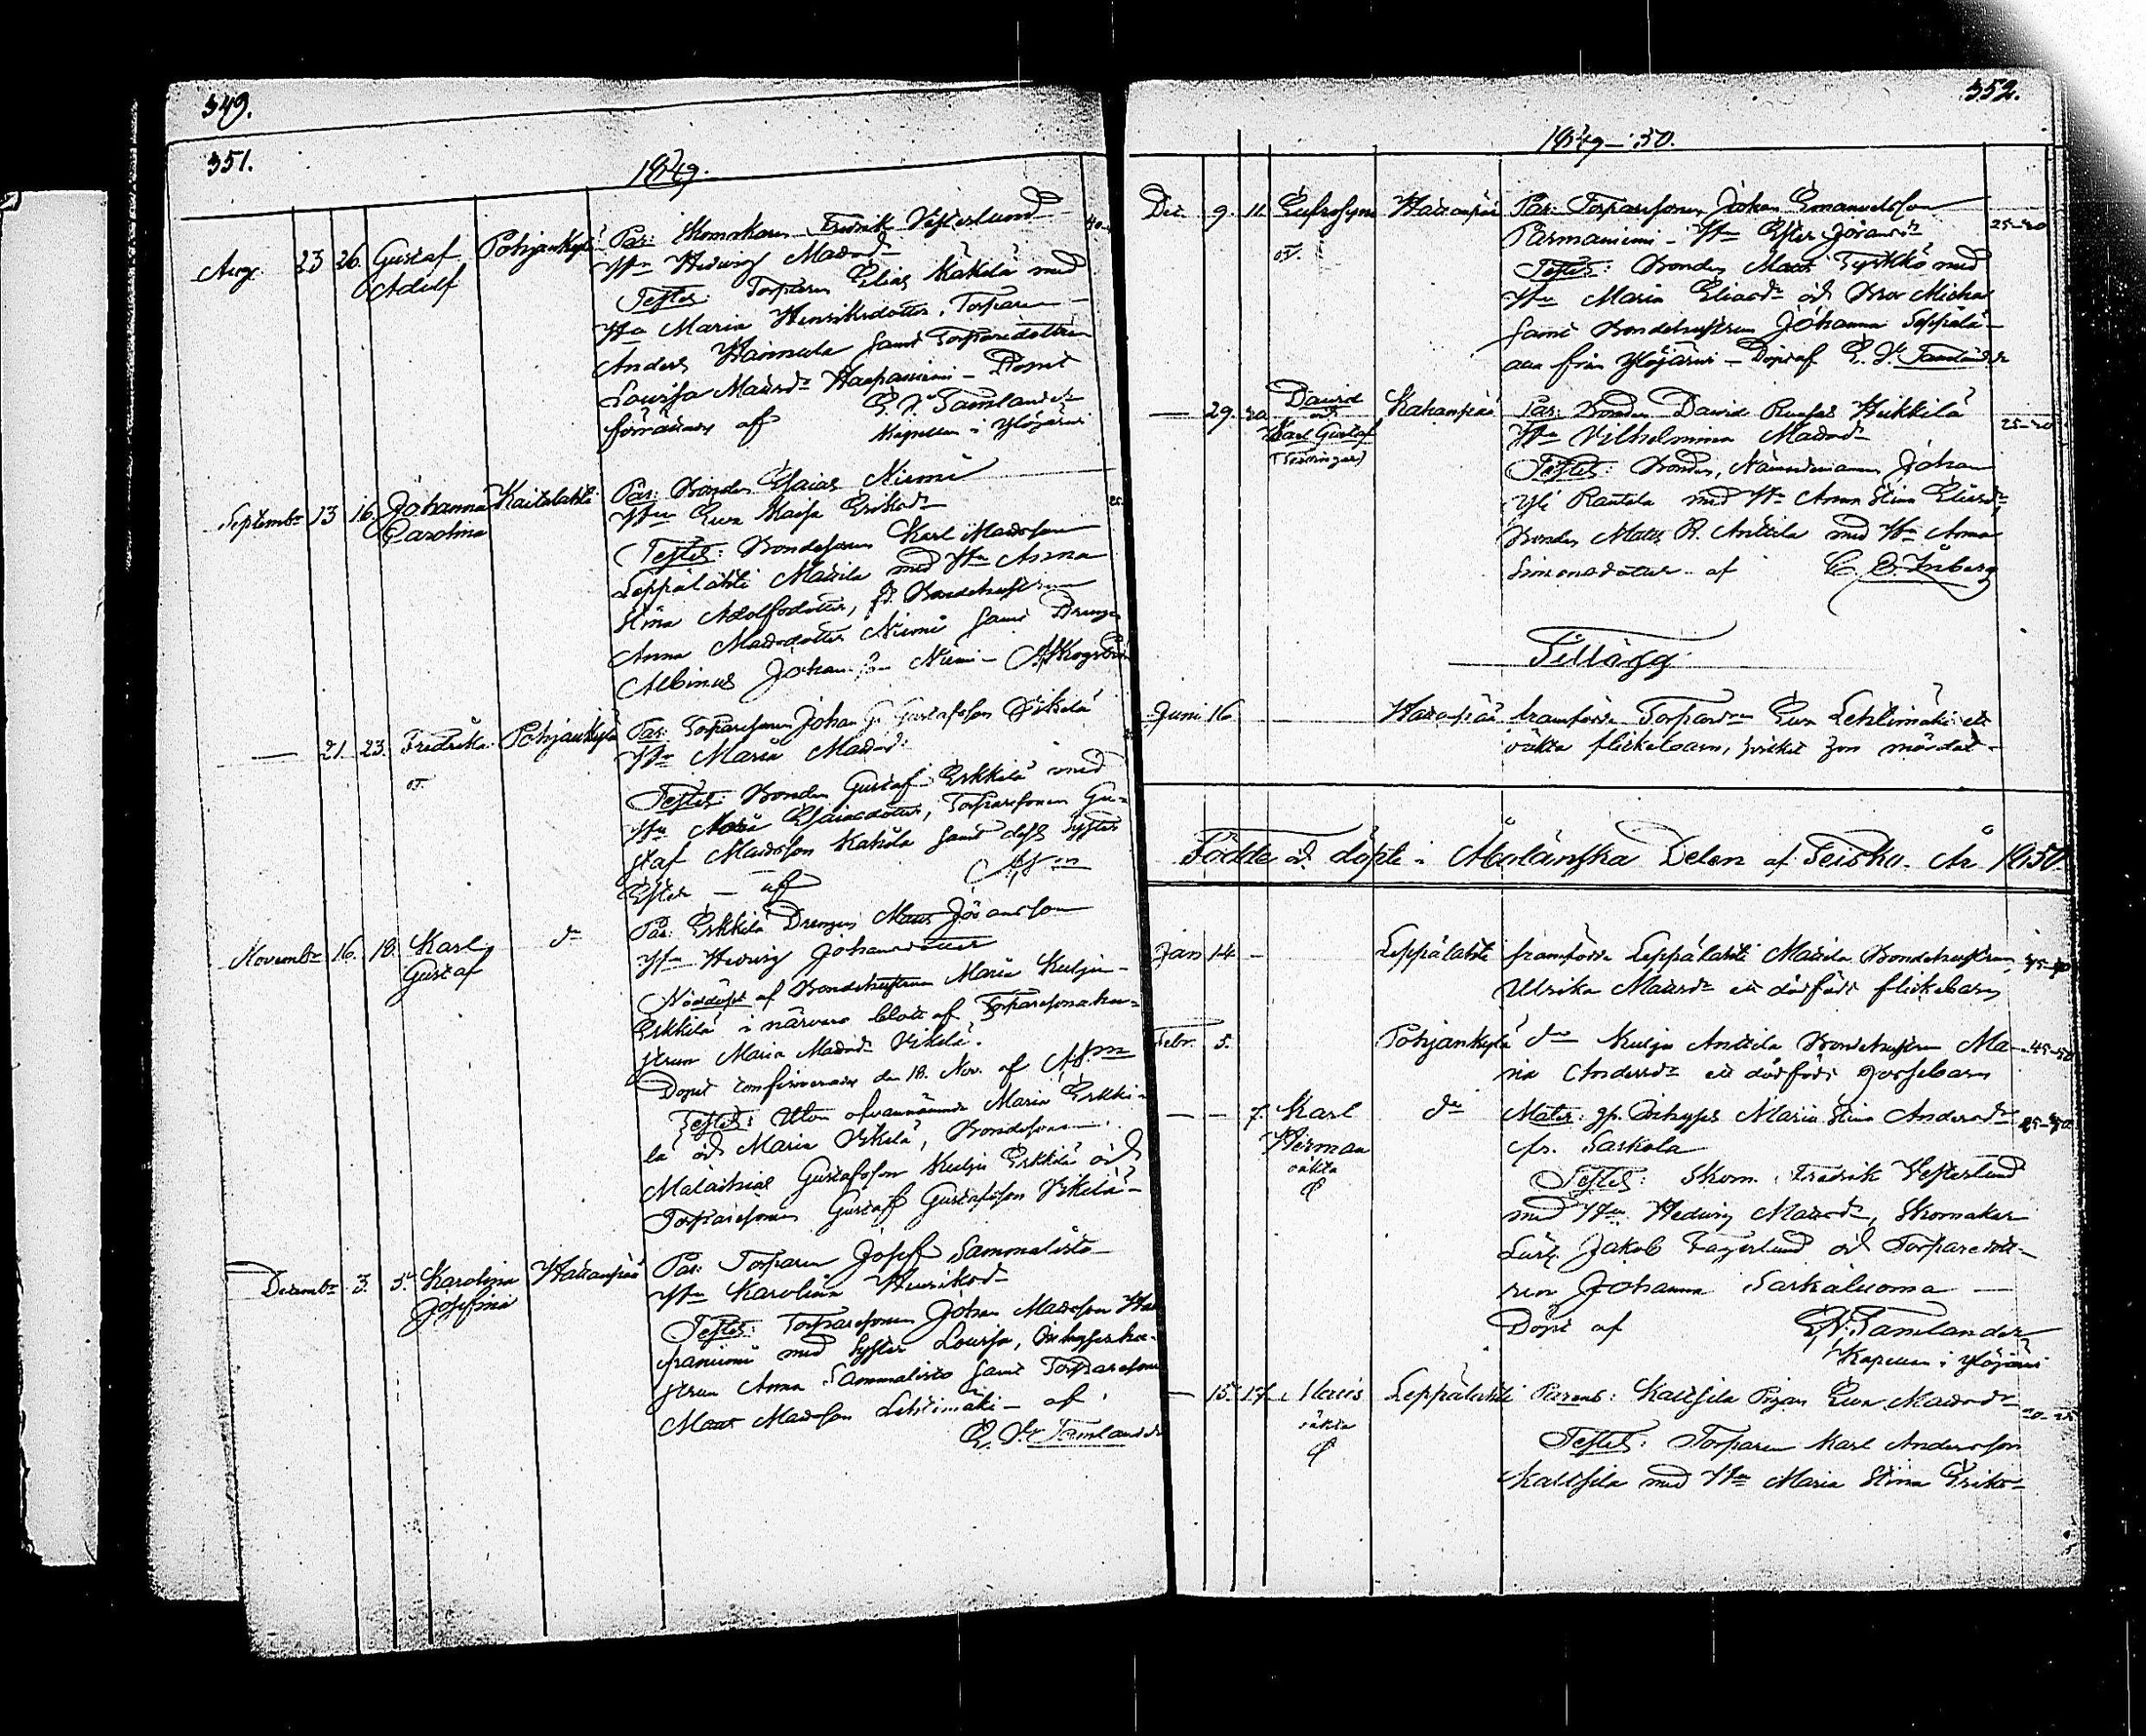 349.
351.
1849.
Aug. 23 26. Gustaf Adolf Pohjankylä Par: Skomakaren Fredrik Vesterlund
Hu Hedvig Matsdr
Testes: Torparen Elias Kakela med
Hu Maria Henriksdotter, Torparen
Anders samt Torparedottren
Lovisa Matsdr Haapaniemi – Döpet
förrättadt af E. W. Tamlander
Kapellan i Ylöjärvi
Septembr 13 16. Johanna Carolina Kaitalahti Par: Bonden Esaias Niemi
Hu Eva Kaisa Eriksdr
Testes: Bondesonen Karl Mattsson
Leppälahti Mattila med Hu Anna
Stina Adolfsdotter, fd. Bondehustrun
Anna Matsdotter Niemi samt Drengen
Albinus Johansson Niemi –
— 21. 23. Fredrika Pohjankylä Par: Torparesonen Johan G. Gustafsson Vikelä
Hu Maria Matsdr
Testes: Bonden Gustaf Erkkilä med
Hu Maria Esaiasdotter, Torparesonen Gu-
staf Mattsson Kakela samt dess Syster
Ester – af
Novembr 16. 18. Karl Gustaf do Par: Erkkilä Drengen Matts Göransson
Hu Hedvig Johansdotter
Nöddöpt af Bondehustrun Maria Kulju-
Erkkilä i närvaro blott af Torparesonehu-
strun Maria Matsdr Vikelä.
Döpet confirmerades den 18. Nov. af
Testes: Utom ofvannämnde Maria Erkki-
lä och Maria Vikelä, Bondesonen
Malachias Gustafsson Kulju Erkkilä och
Torparesonen Gustaf Gustafsson Vikelä –
Decembr 3. 5. Karolina Josefina Hattanpää Par: Torparen Josef Sammalisto
Hu Karolina Henriksdr
Testes: Torparesonen Johan Mattsson Haa-
paniemi med Syster Lovisa, Inhyseshu-
strun Anna Sammalisto samt Torparesonen
Matts Mattsson Lehtimäki – af
E. W. Tamlander
352.
1849–50.
Dec. 9. 11. Eufrosyne Hattanpää Par: Torparesonen Johan Emanuelsson
Parmaniemi – Hu Ester Göransdr 25–30
Testes: Bonden Matts Tyrkkö med
Hu Maria Eliasdr och Bror Michael
samt Bondehustrun Johanna Seppälä
från Ylöjärvi – Döpt af E. W. Tamlander
— 29. 30 David och Karl Gustaf (Tvillingar) Kahanpää Par: Bonden David Heikkilä
Hu Vilhelmina Matsdr 25–30
Testes: Bonden, Nämndemannen Johan
Yli Rantala med Hu Anna Stina Eliasdr,
Bonden Matts R. Anttila med Hu Anna
Simonsdotter – af
Tillägg
Juni 16. Hattanpää framfödde Torparedr Eva Lehtimäki ett
oäkta flickebarn, hvilket hon mördat –
Födde och döpte i Aholänska Delen af Teisko År 1850.
Jan 14 – Leppälahti framfödde Leppälahti Mattila Bondehustrun
Ulrika Matsdr ett dödfödt flickebarn
Febr. 5. Pohjankylä do Kulju Anttila Bondehustrun Ma- 45–50
ria Andersdr ett dödfödt gossebarn
— – 7. Karl Herman oäkta do Mater: Inhyses Maria Stina Andersdr
fr. Saskola
Testes: Skom. Fredrik Vesterlund
med Hu Hedvig Matsdr, Skomakare
Lärl. Jakob Fagerlund och Torparedott-
ren Johanna Saskaluoma –
Döpt af E. W. Tamlander
Kapellan i Ylöjärvi
— 15. 17. oäkta Leppälahti Parens: Kaltsila Pigan Eva Matsdr
Testes: Torparen Karl Andersson
Kaltsila med Hu Maria Stina Eriks-